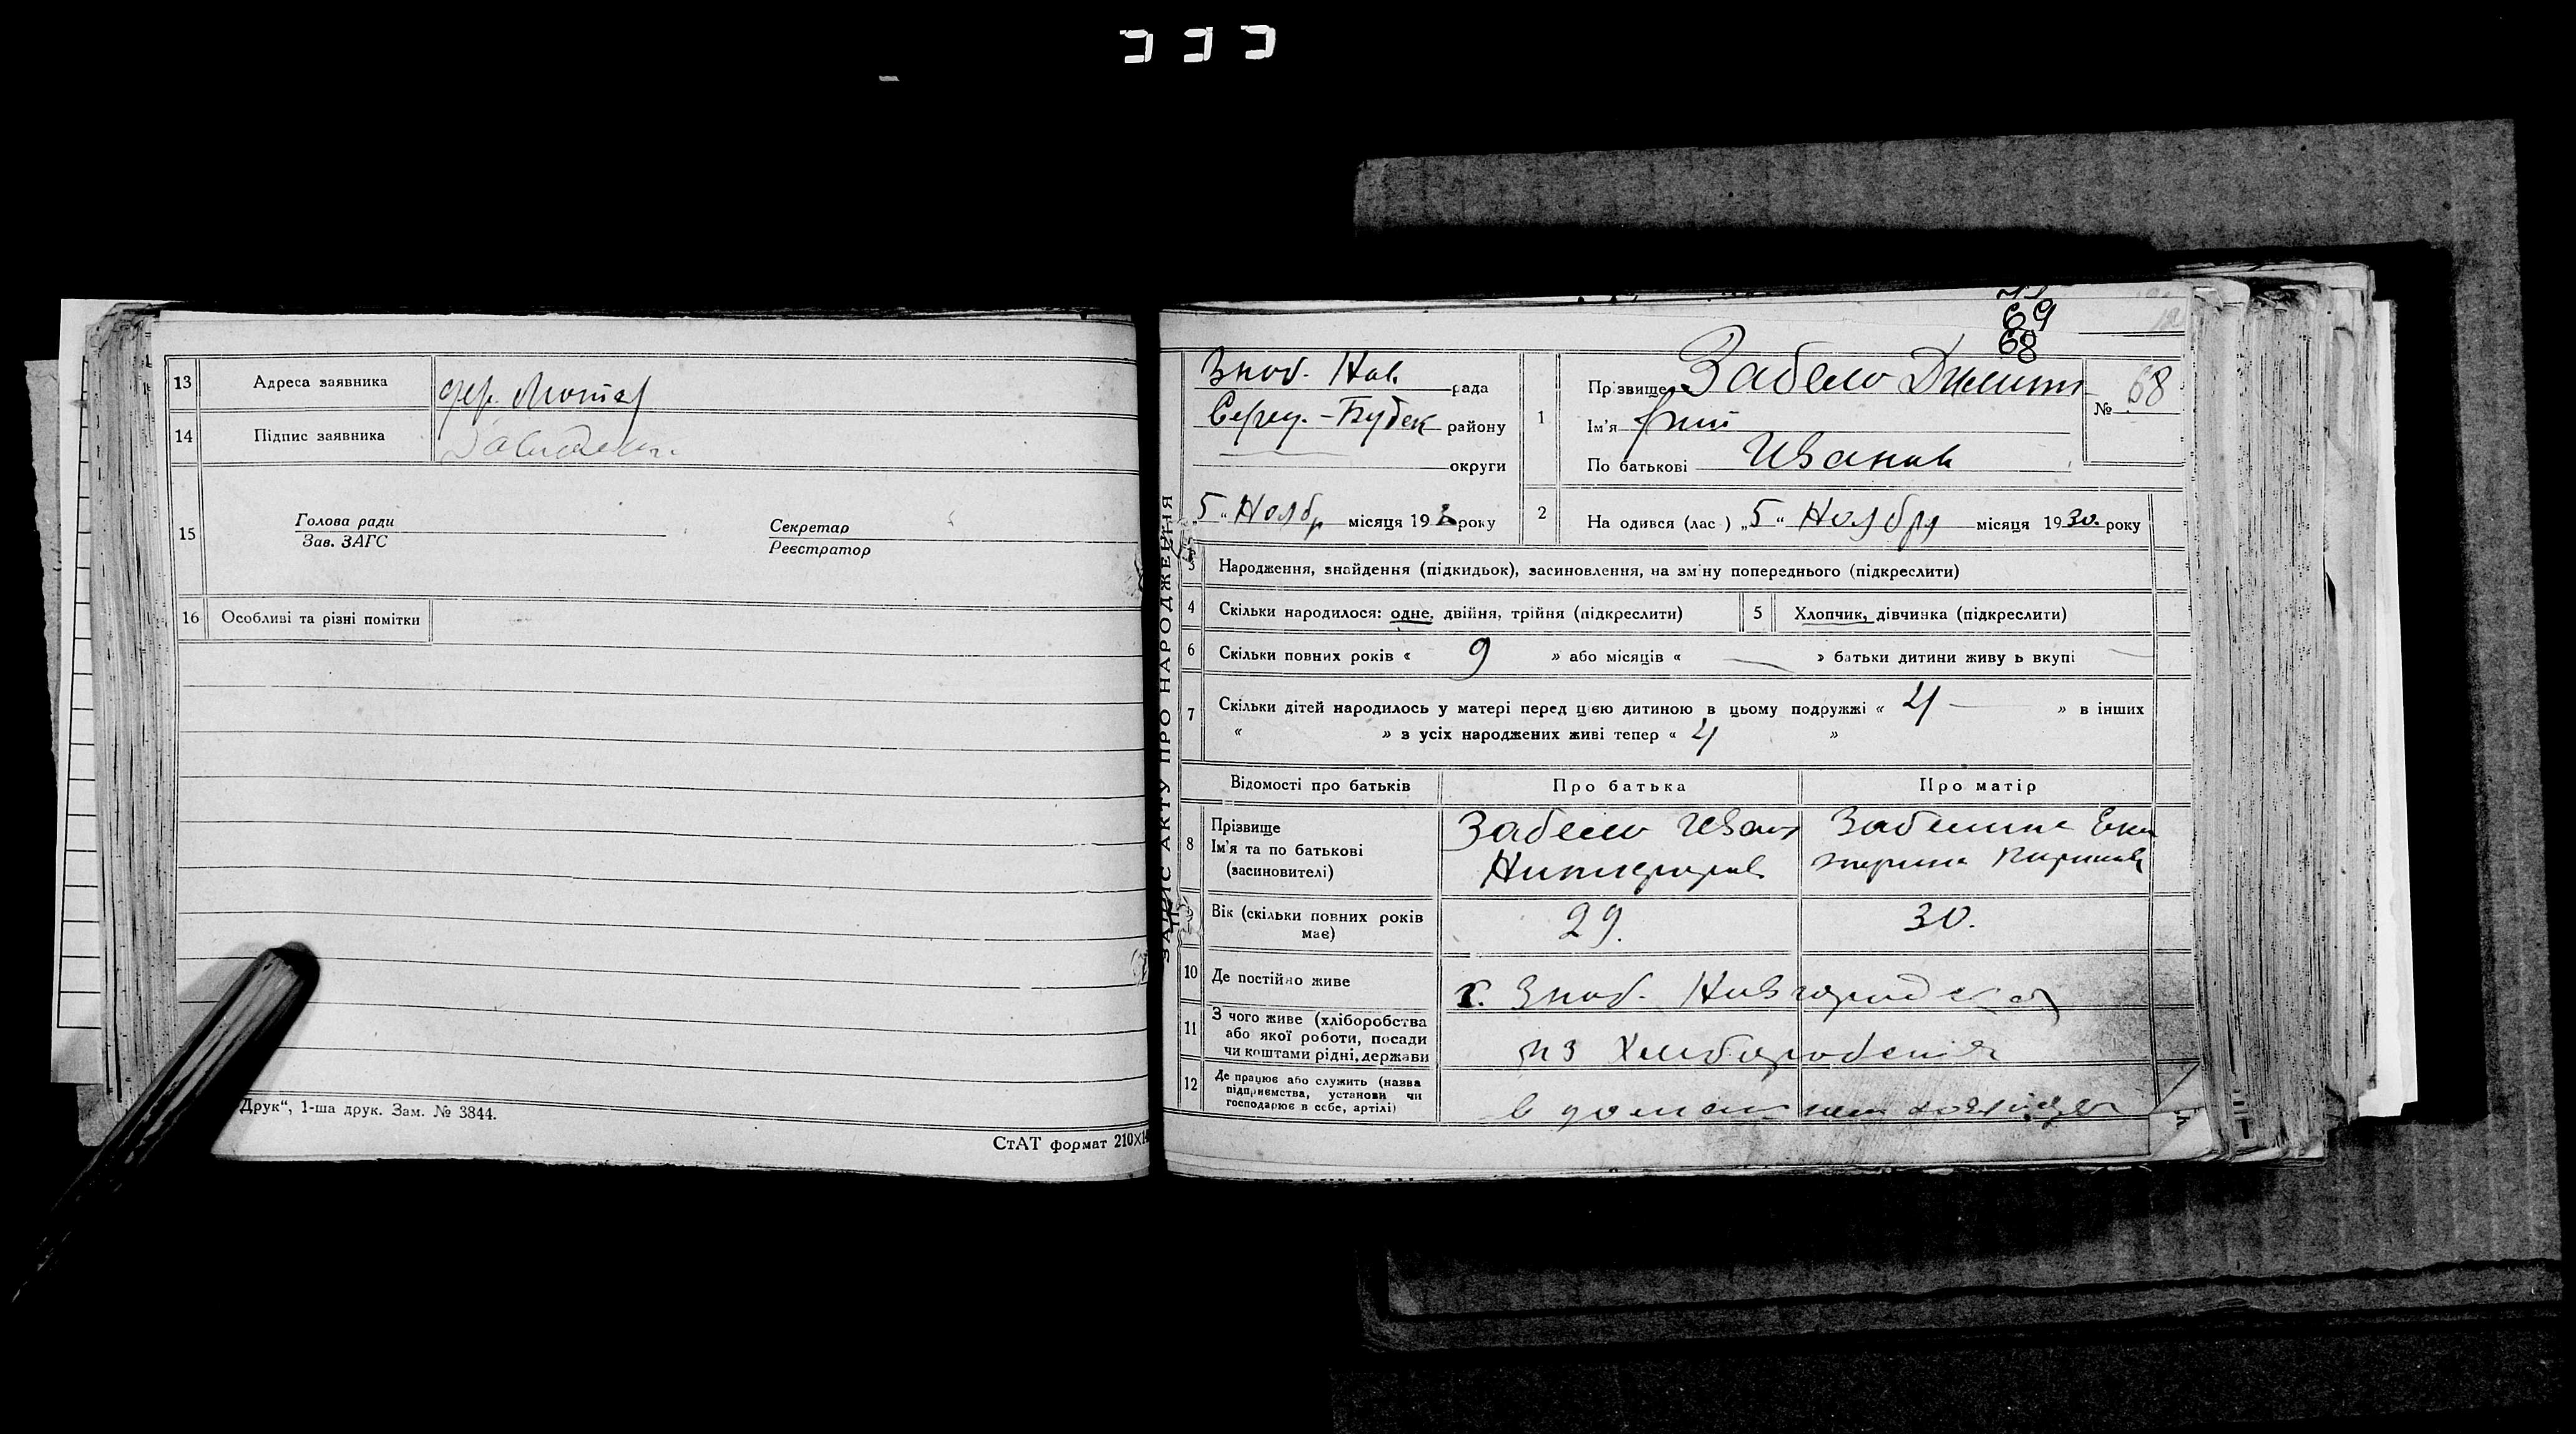 13 Адреса заявника дер.
14 Підпис заявника
15 Голова ради
Зав. ЗАГС
Секретар
Реєстратор
16 Особливі та різні помітки
Друк“, 1-ша друк. Зам. № 3844.
СтАТ формат 210×14
69
68
ЗАПИС АКТУ ПРО НАРОДЖЕННЯ
Зноб. Нов. рада
Серед.-Будск району
округи
5 “ Ноябр місяця 193 року
1 Прізвище Забело Дмит
Ім'я рий
По батькові Иванов
№ 68
2 На одився (лас ) „5“ Ноября місяця 1930. року
3 Народження, знайдення (підкидьок), засиновлення, на зміну попереднього (підкреслити)
4 Скільки народилося: одне, двійня, трійня (підкреслити)
5 Хлопчик, дівчинка (підкреслити)
6 Скільки повних років « 9 » або місяців « — » батьки дитини живу ь вкупі
7 Скільки дітей народилось у матері перед цією дитиною в цьому подружжі « 4 — » в інших
« » з усіх народжених живі тепер « 4 »
Відомості про батьків Про батька Про матір
8 Прізвище
Ім'я та по батькові
(засиновителі)
Забело Иван
Забелина Ека
терина
9 Вік (скільки повних років
має)
29. 30.
10 Де постійно живе
с. Зноб. Новгородская
11 З чого живе (хліборобства
або якої роботи, посади
чи коштами рідні, держави
из Хлиборобения
12 Де працює або служить (назва
підприємства, установи чи
господарює в себе, артілі)
в домашнем